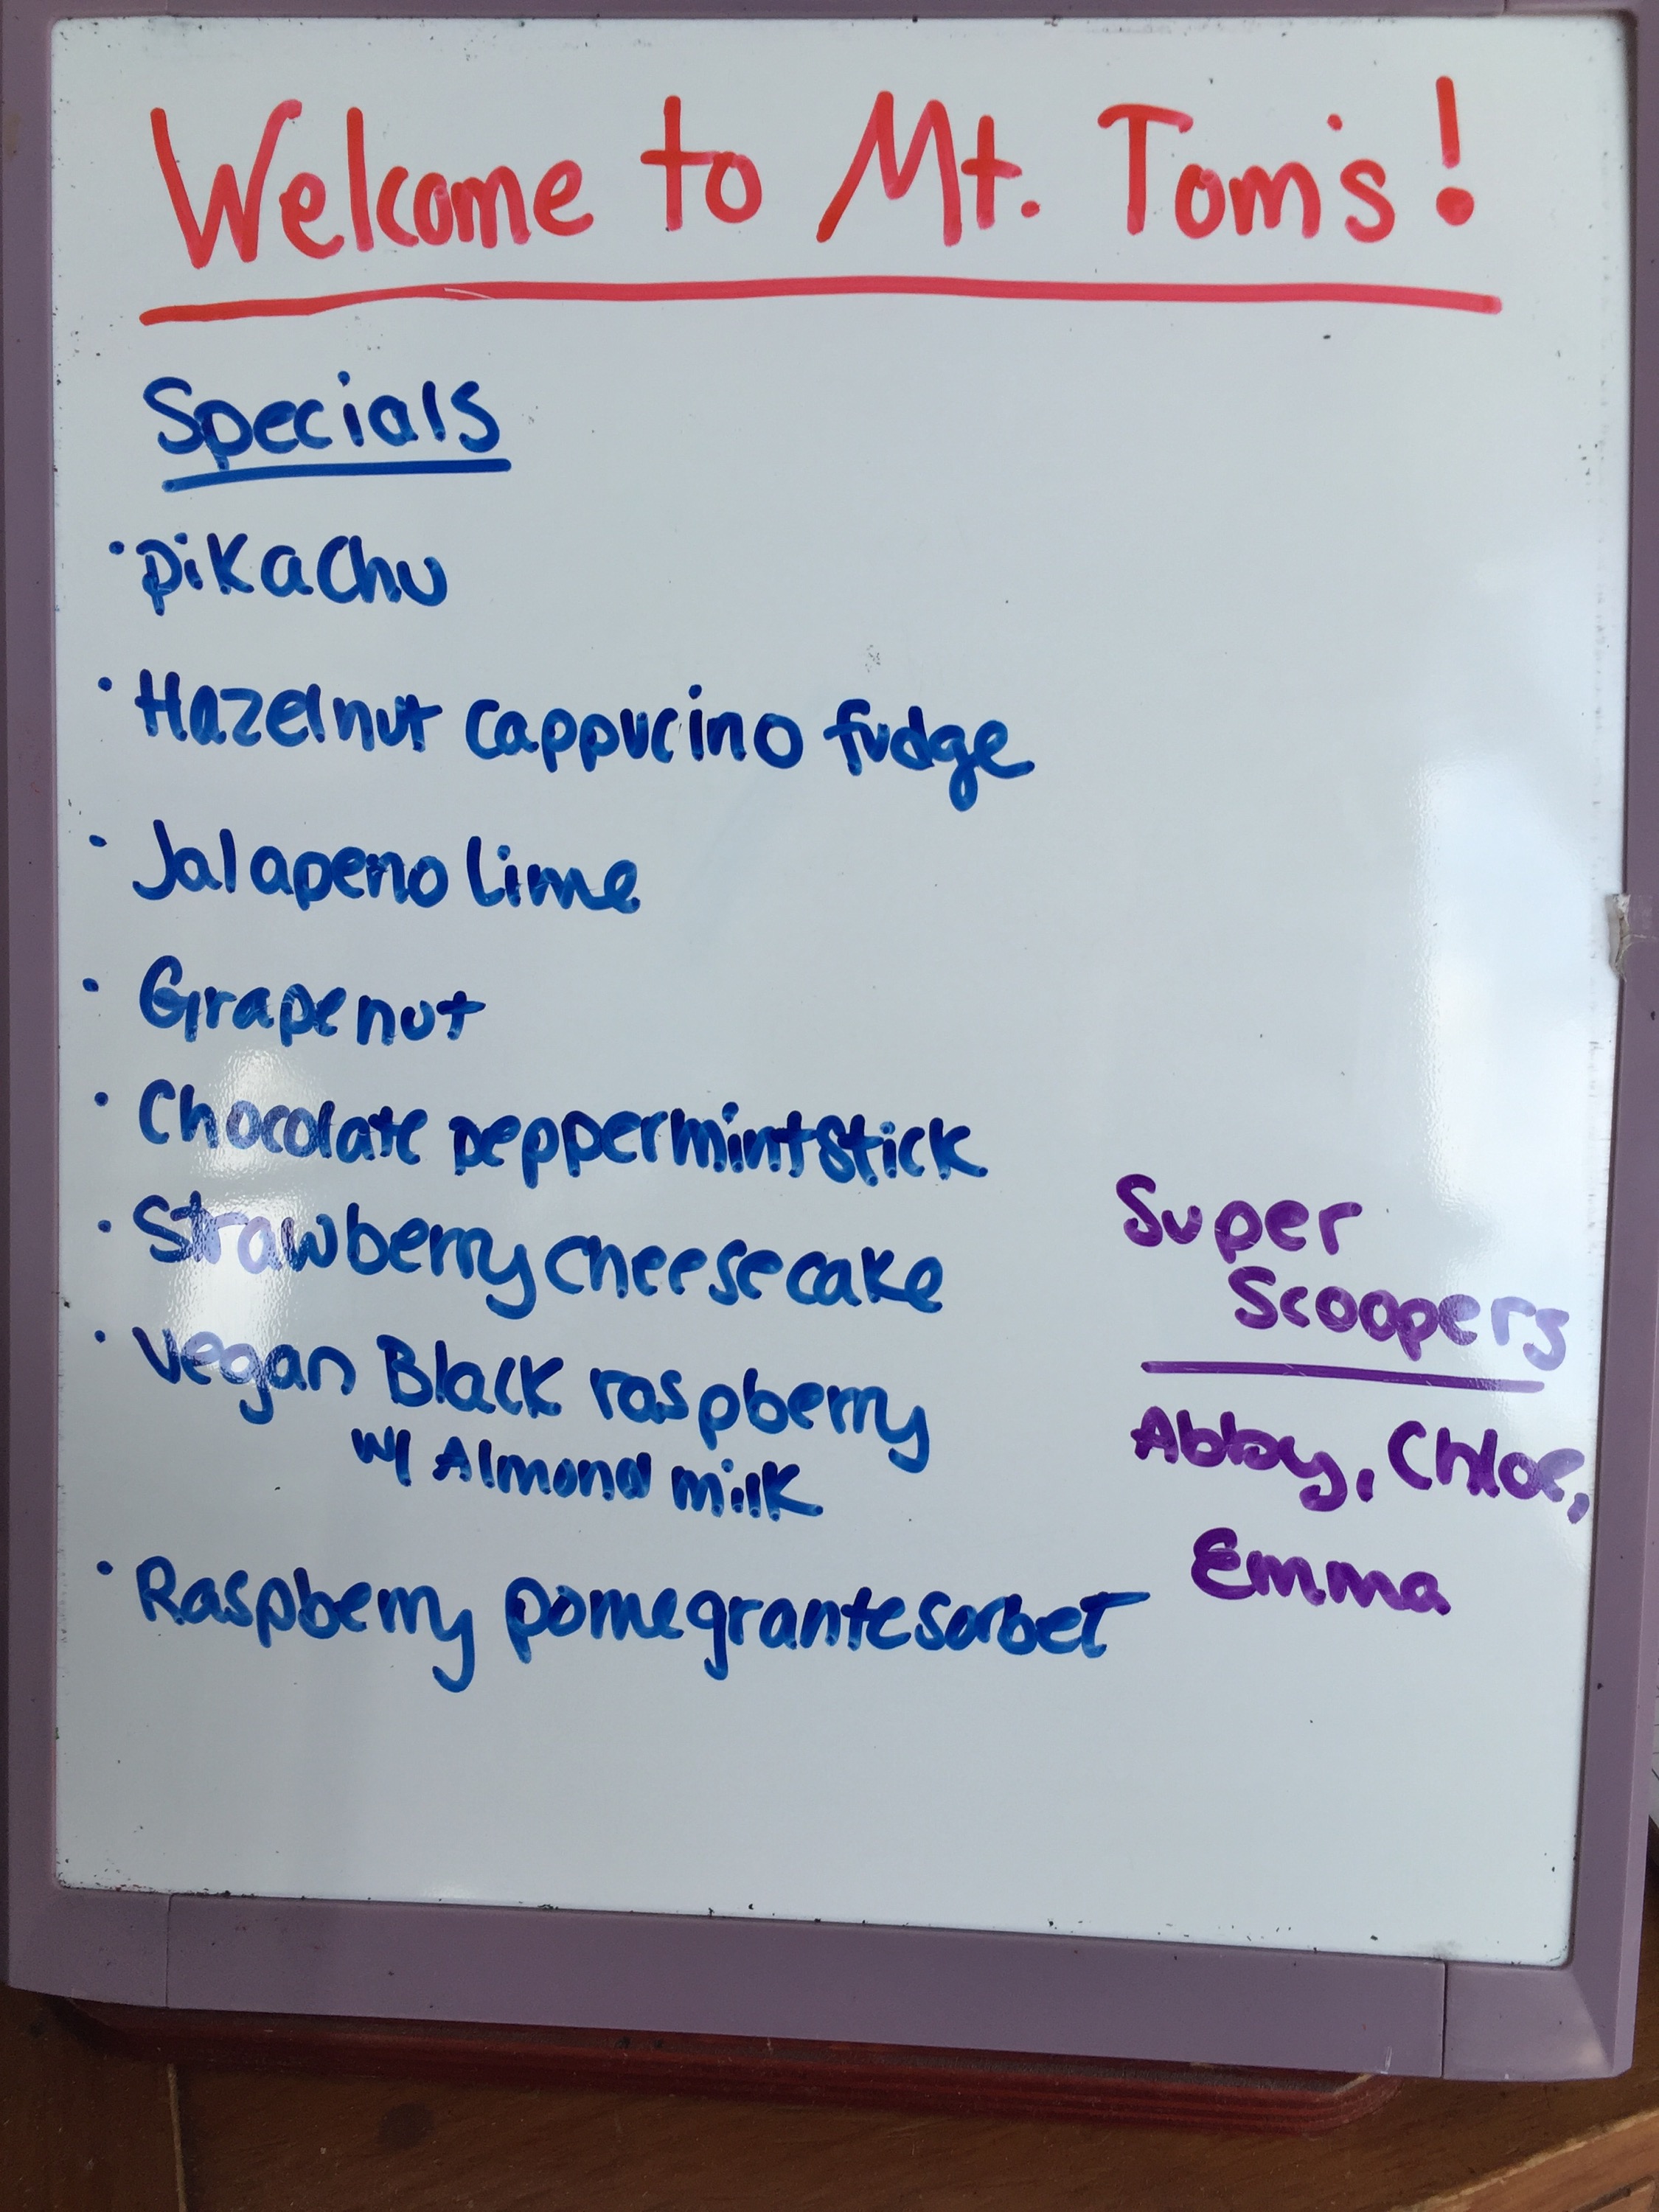 Welcome to Mt. Tom's!
Specials
· pikachu
· Hazelnut cappucino fudge
· Jalapeno Lime
· Grapenut
· Chocolate peppermint stick
· Strawberry cheesecake
· Vegan Black raspberry
w/ Almond milk
· Raspberry pomegrante sorbet
Super
Scoopers
Abby, Chloe,
Emma